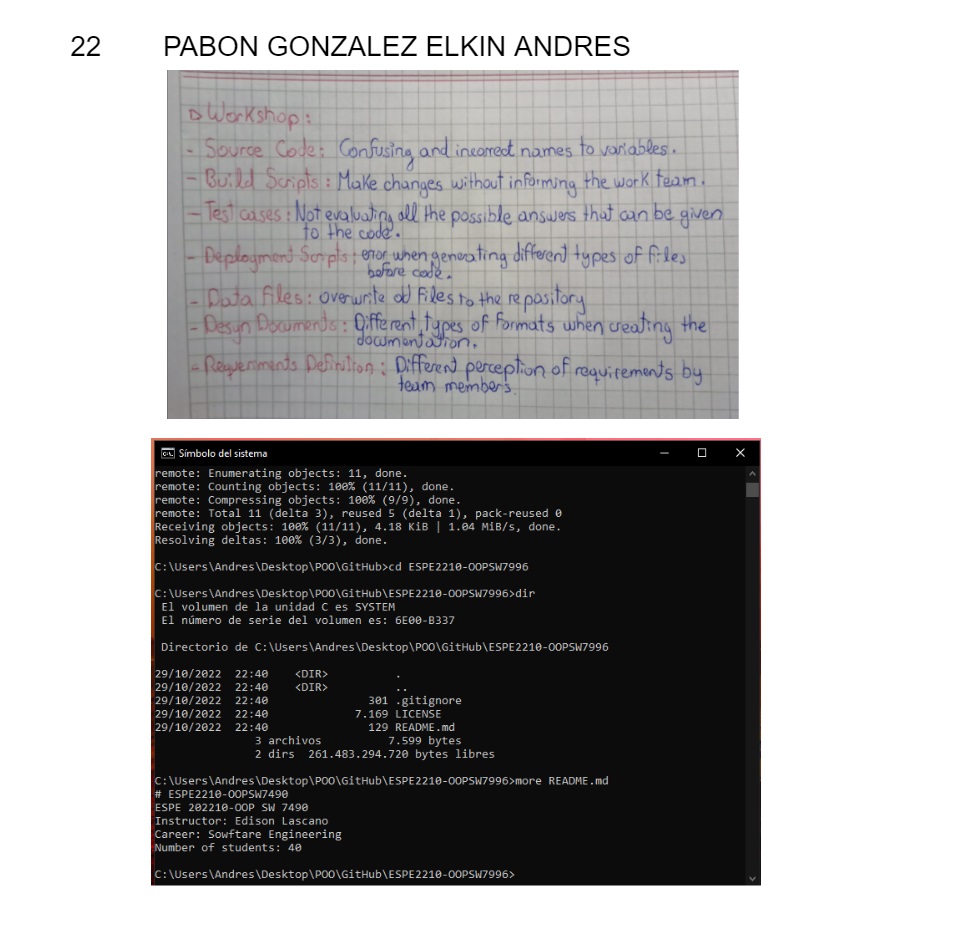 22 PABON GONZALEZ ELKIN ANDRES
Workshop:
- Source Code: Confusing and incorrect names to variables.
- Build Scripts: Make changes without informing the work team.
- Test cases: Not evaluating all the possible answers that can be given
to the code.
- Deployment Scripts: error when generating different types of files
before code.
- Data files: overwrite old files to the repository
- Design Documents: Different types of formats when creating the
documentation.
- Requeriments Definition: Different perception of requirements by
team members.
Símbolo del sistema
remote: Enumerating objects: 11, done.
remote: Counting objects: 100% (11/11), done.
remote: Compressing objects: 100% (9/9), done.
remote: Total 11 (delta 3), reused 5 (delta 1), pack-reused 0
Receiving objects: 100% (11/11), 4.18 KiB | 1.04 MiB/s, done.
Resolving deltas: 100% (3/3), done.
C:\Users\Andres\Desktop\POO\GitHub>cd ESPE2210-OOPSW7996
C:\Users\Andres\Desktop\POO\GitHub\ESPE2210-OOPSW7996>dir
El volumen de la unidad C es SYSTEM
El número de serie del volumen es: 6E00-B337
Directorio de C:\Users\Andres\Desktop\POO\GitHub\ESPE2210-OOPSW7996
29/10/2022 22:40 <DIR> .
29/10/2022 22:40 <DIR> ..
29/10/2022 22:40 301 .gitignore
29/10/2022 22:40 7.169 LICENSE
29/10/2022 22:40 129 README.md
3 archivos 7.599 bytes
2 dirs 261.483.294.720 bytes libres
C:\Users\Andres\Desktop\POO\GitHub\ESPE2210-OOPSW7996>more README.md
# ESPE2210-OOPSW7490
ESPE 202210-OOP SW 7490
Instructor: Edison Lascano
Career: Sowftare Engineering
Number of students: 40
C:\Users\Andres\Desktop\POO\GitHub\ESPE2210-OOPSW7996>